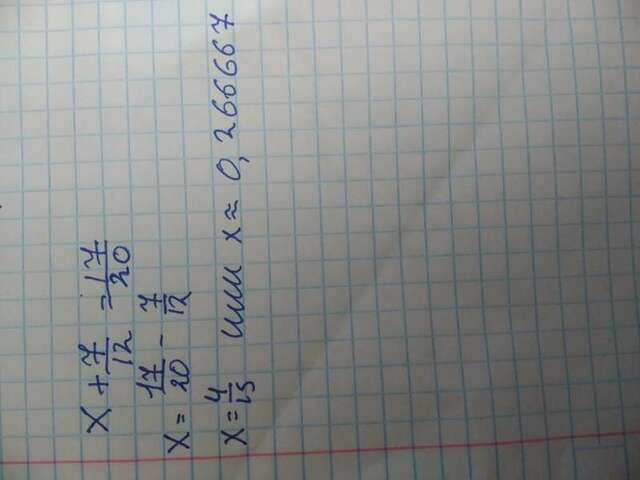 x + 7/12 = 17/20
x = 17/20 - 7/12
x = 4/15 или x ≈ 0,266667